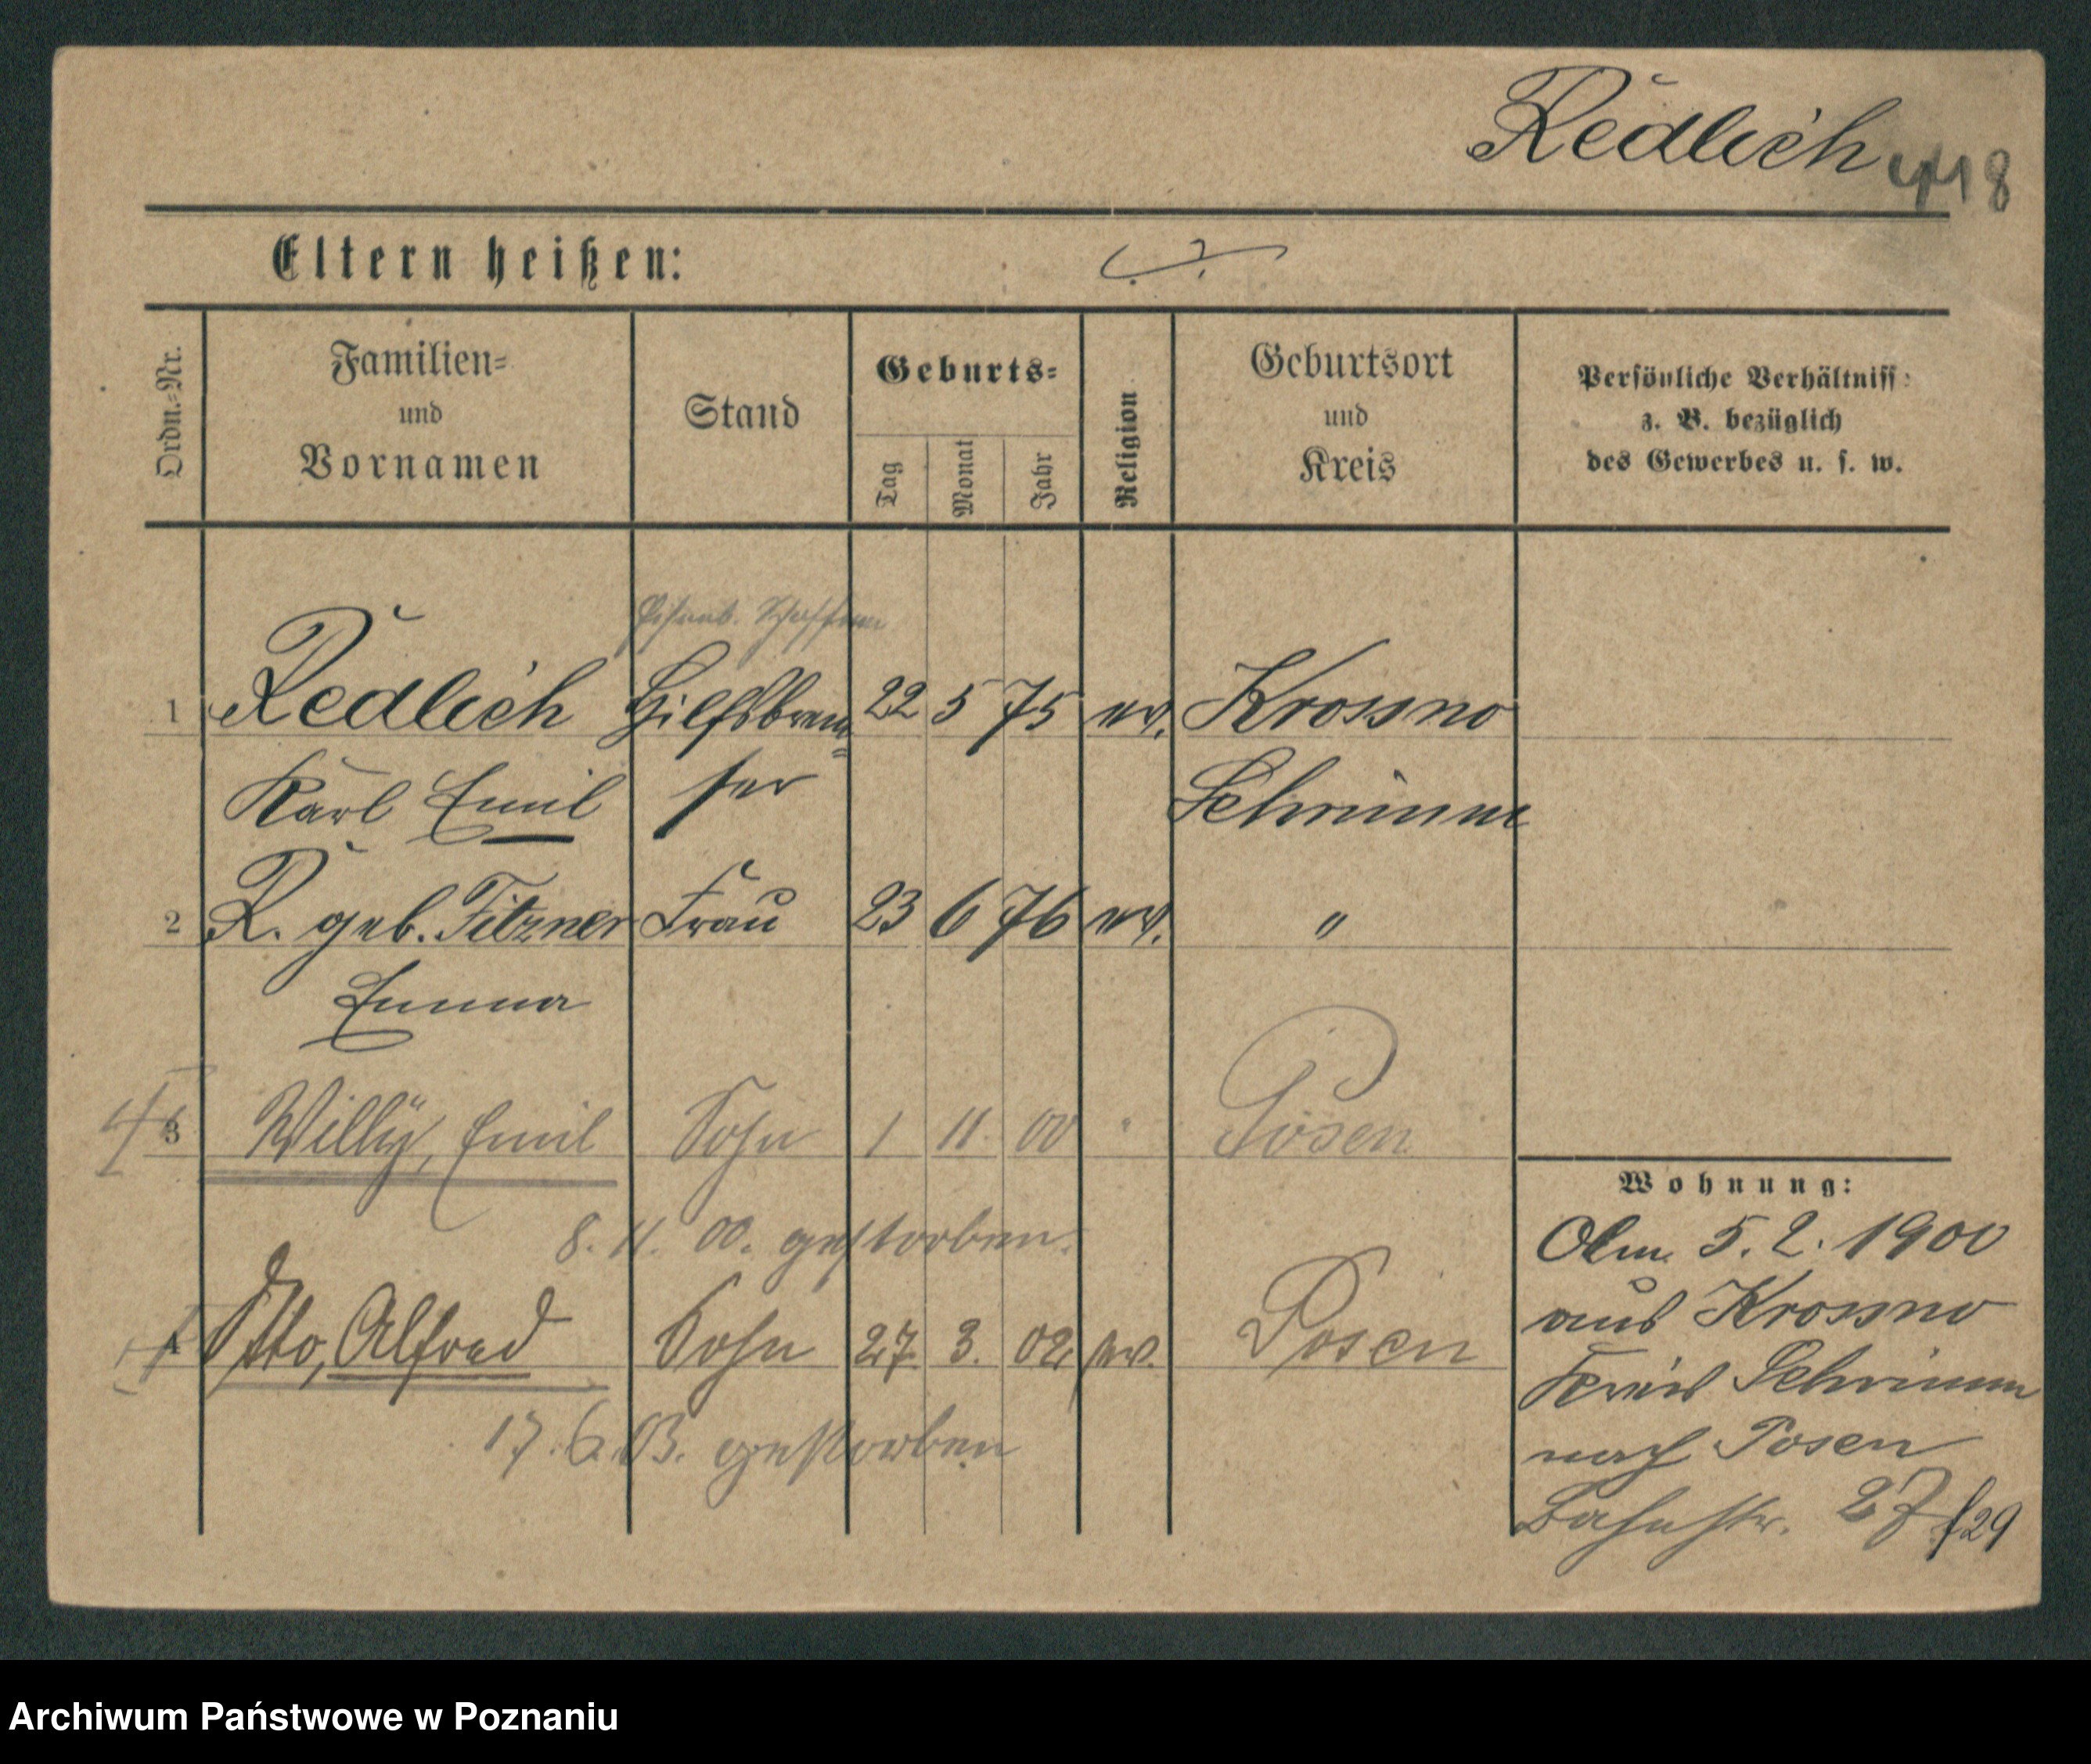 Redlich 418
Eltern heißen: ./.
Ordn.-Nr.
Familien-
und
Vornamen
Stand
Geburts-
Tag
Monat
Jahr
Religion
Geburtsort
und
Kreis
Persönliche Verhältniss
z. B. bezüglich
des Gewerbes u. s. w.
Eisenb. Schaffner
1 Redlich Hilfsbrem= 22 5 75 ev. Krossno
Karl Emil ser Schrimm
2 R. geb. Fitzner Frau 23 6 76 ev. "
Emma
3 Willy, Emil Sohn 1 11. 00 " Posen
8. 11. 00. gestorben.
4 Otto, Alfred Sohn 27. 3. 02. ev. Posen
17. 6. 03. gestorben
Wohnung:
5. 2. 1900
aus Krossno
Kreis Schrimm
nach Posen
Bahnstr. 27/29
Archiwum Państwowe w Poznaniu